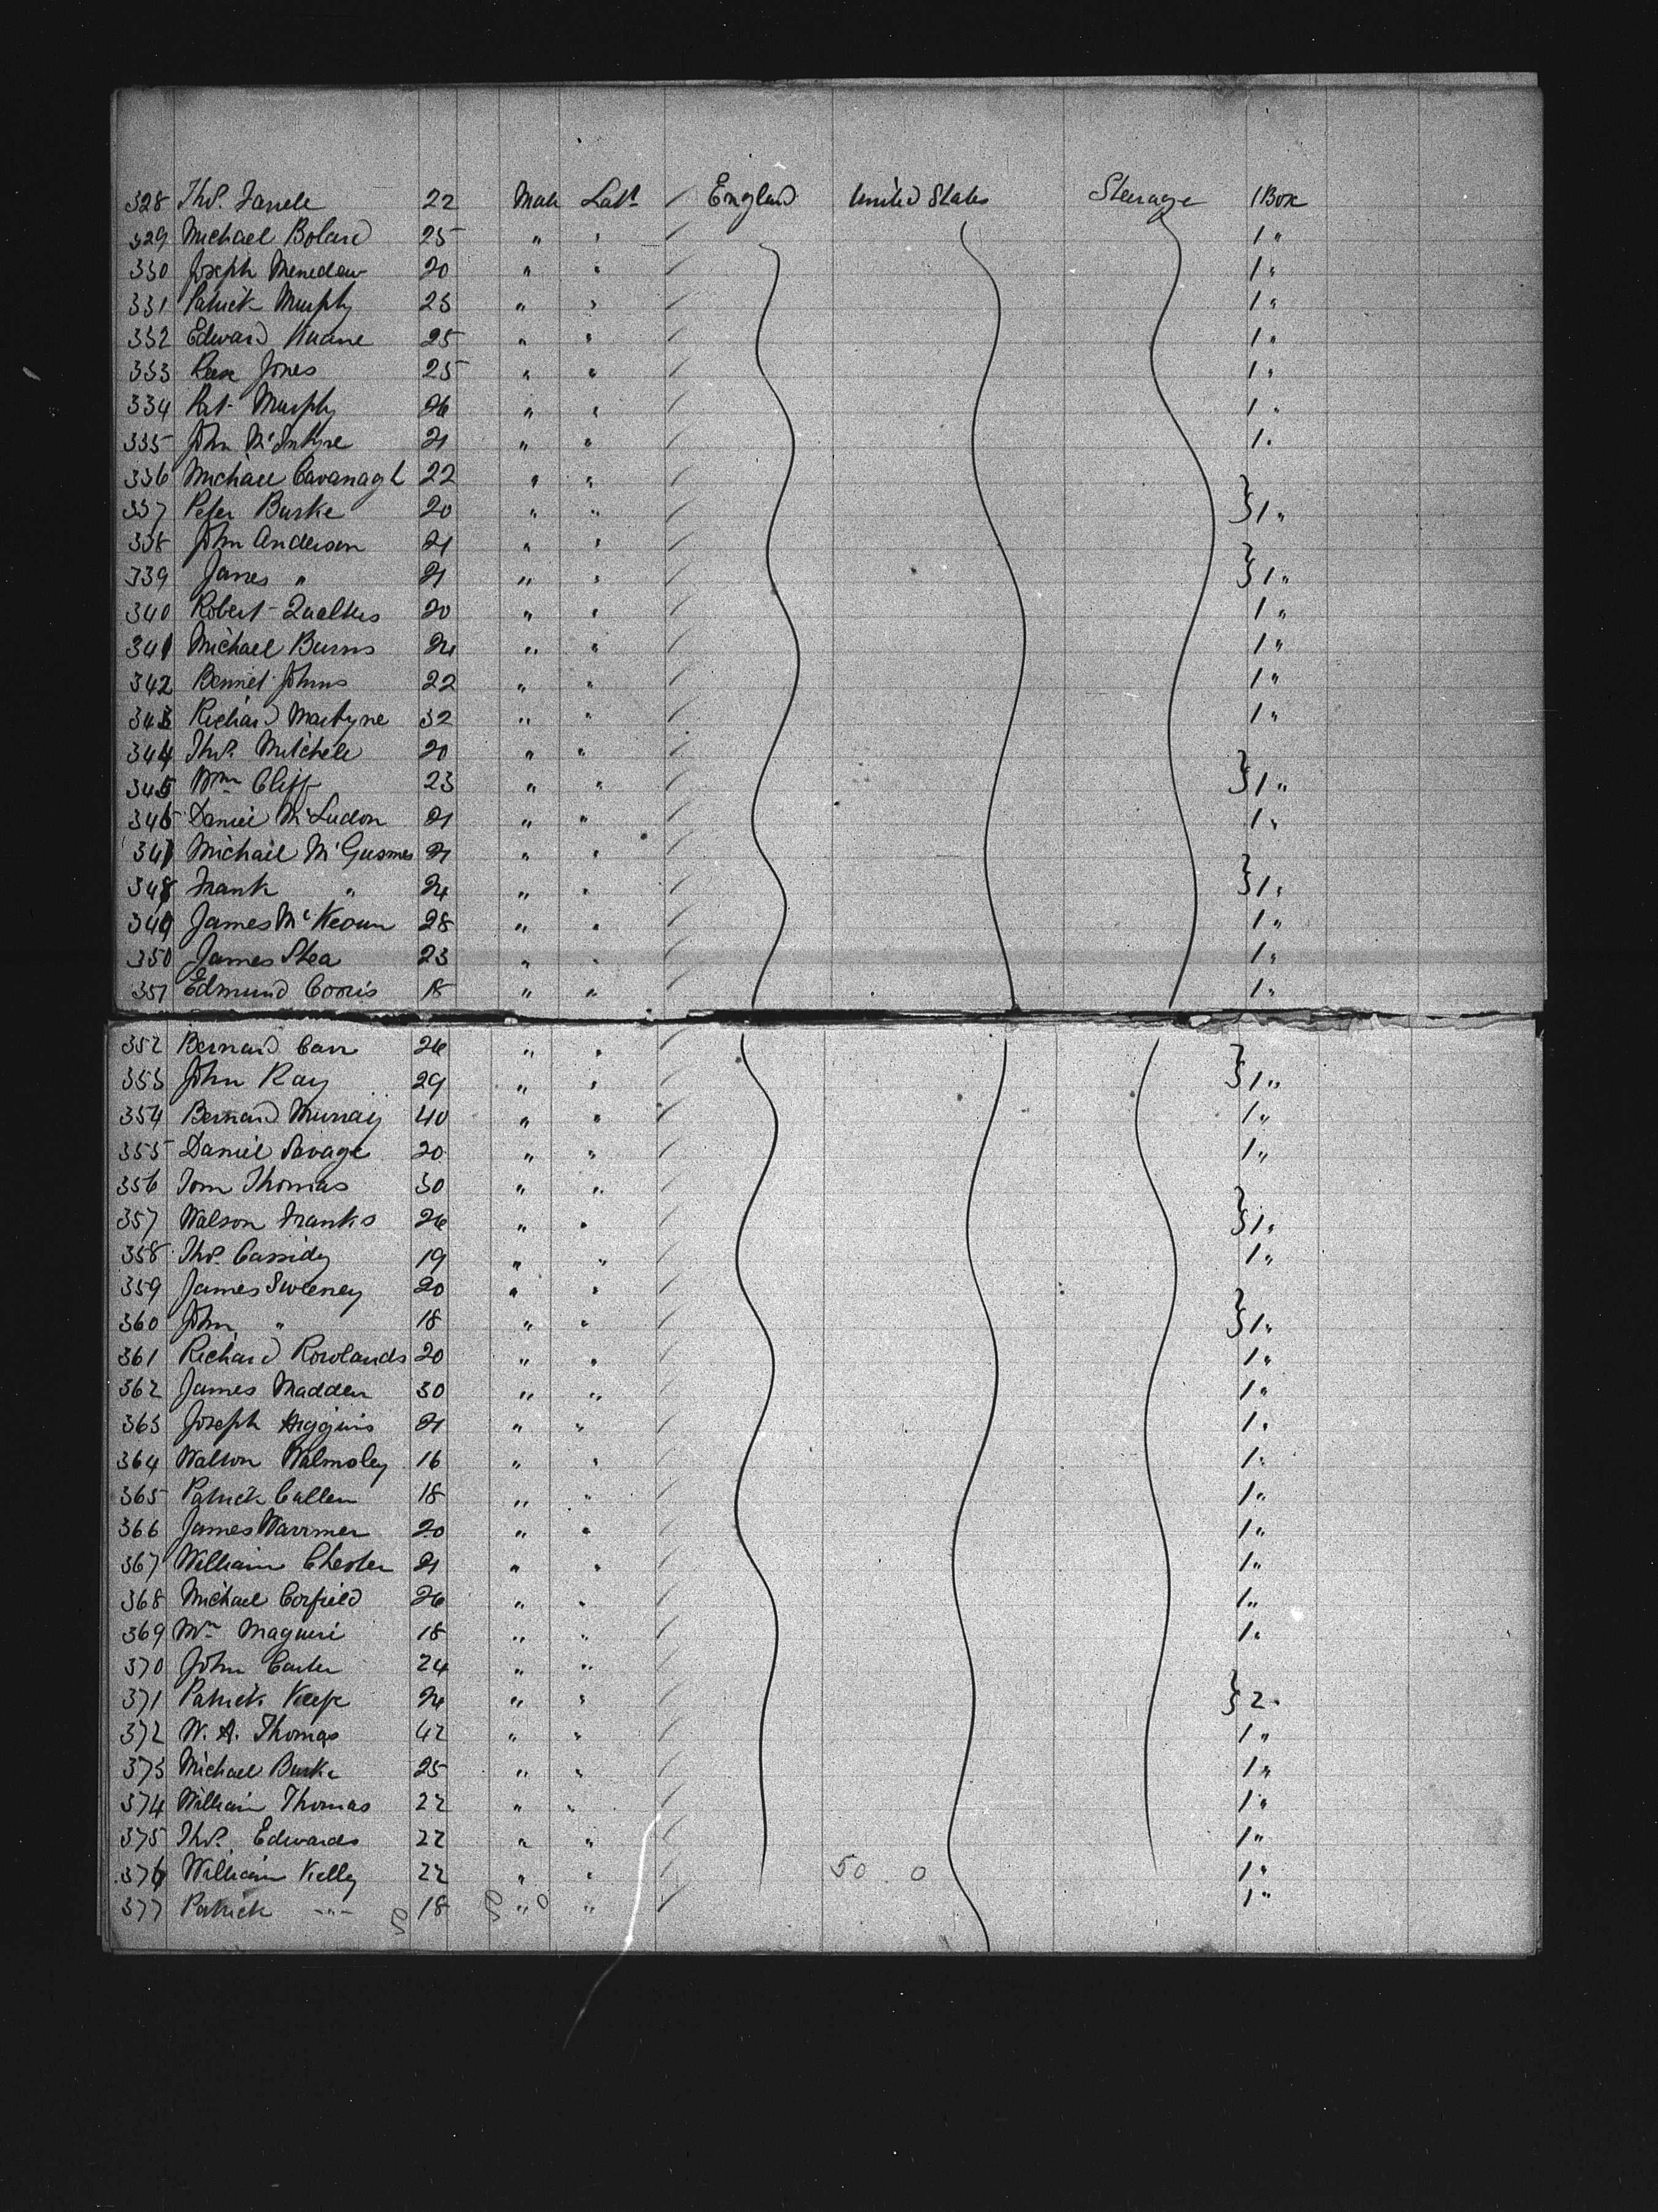 328 Thos. Farrell 22 Male Labr / England United States Steerage 1 Box
329 Michael Boland 25 " " / 1 "
330 Joseph 20 " " / 1 "
331 Patrick Murphy 23 " " / 1 "
332 Edward 25 " " / 1 "
333 Jones 25 " " / 1 "
334 Pat Murphy 26 " " / 1 "
335 John McIntyre 21 " " / 1 "
336 Michael Cavanagh 22 " " /
337 Peter Burke 20 " " / } 1 "
338 John Anderson 21 " " /
339 James " 21 " " / } 1 "
340 Robert Qualters 20 " " / 1 "
341 Michael Burns 24 " " / 1 "
342 Bennet Johns 22 " " / 1 "
343 Richard Martyne 32 " " / 1 "
344 Thos. Mitchell 20 " " /
345 Wm Cliff 23 " " / } 1 "
346 Daniel 21 " " / 1 "
347 Michael 21 " " /
348 Frank " 24 " " / } 1 "
349 James McKeown 28 " " / 1 "
350 James Shea 23 " " / 1 "
351 Edmund Corris 18 " " / 1 "
352 Bernard Carr 26 " " /
353 John Ray 29 " " / } 1 "
354 Bernard Murray 40 " " / 1 "
355 Daniel Savage 20 " " / 1 "
356 Tom Thomas 30 " " /
357 Walson Franks 26 " " / } 1 "
358 Thos. Cassidy 19 " " / 1 "
359 James Sweeney 20 " " /
360 John " 18 " " / } 1 "
361 Richard Rowlands 20 " " / 1 "
362 James Madden 30 " " / 1 "
363 Joseph Higgins 21 " " / 1 "
364 Walmsley 16 " " / 1 "
365 Patrick Cullen 18 " " / 1 "
366 James Warrmer 20 " " / 1 "
367 William Chester 21 " " / 1 "
368 Michael Corfield 26 " " / 1 "
369 Wm Maguire 18 " " / 1 "
370 John Carter 24 " " /
371 Patrick Keefe 24 " " / } 2 "
372 W. A. Thomas 42 " " / 1 "
373 Michael Burke 25 " " / 1 "
374 William Thomas 22 " " / 1 "
375 Thos. Edwards 22 " " / 1 "
376 William Kelly 22 " " / 50 0 1 "
377 Patrick " 18 " " / 1 "